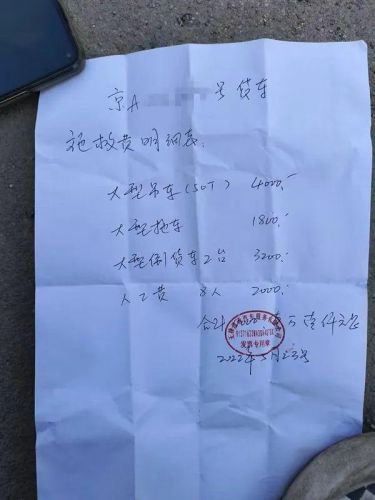 京A 号货车
施救费明细表:
大型吊车(50T) 4000.-
大型拖车 1800.-
大型倒货车2台 3200.-
人工费 8人 2000.-
合计 万壹仟元正
发票专用章
2022年5月23号